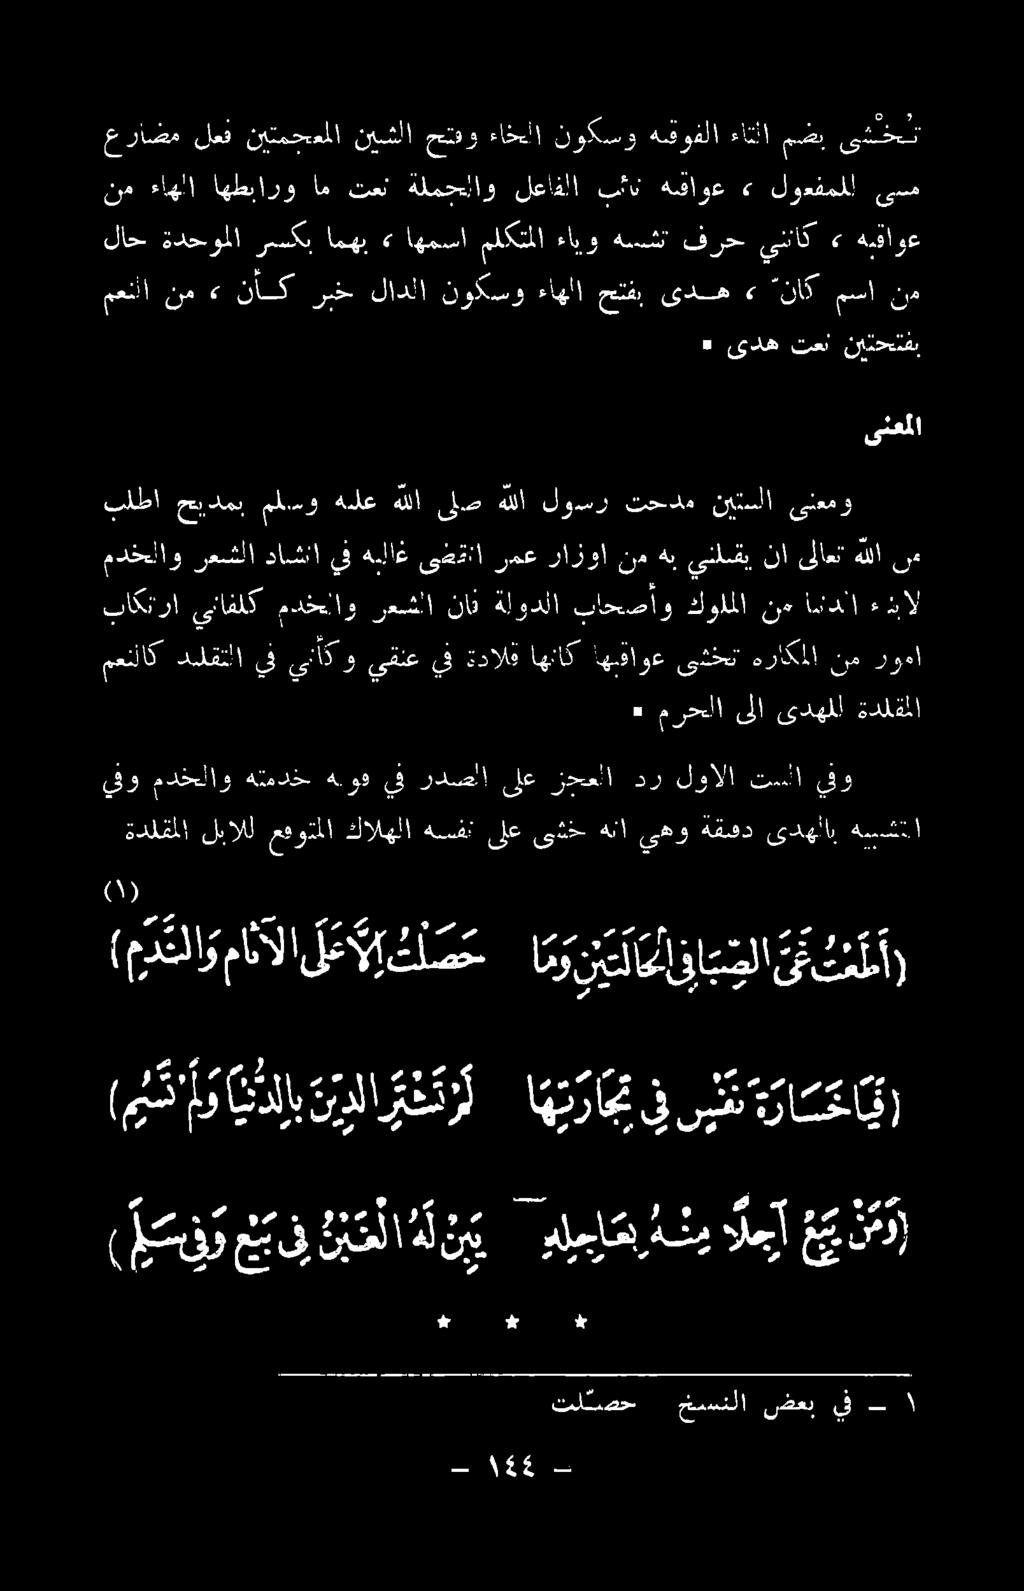 تُخْشى بضم التاء الفوقيه وسكون الخاء وفتح الشين المعجمتين فعل مضارع
مبني للمفعول ، عواقبه نائب الفاعل والجملة نعت ما ورابطها الهاء من
عواقبه ، كانني حرف تشبيه وياء المتكلم اسمها ، بهما بكسر الموحدة حال
من اسم كانّ ، هـدى بفتح الهاء وسكون الدال خبر كـأن ، من النعم
بفتحتين نعت هدى ▪
المعنى
ومعنى البيتين مدحت رسول الله صلى الله عليه وسلم بمديح اطلب
من الله تعالى ان يقيلني به من اوزار عمر انقضى غالبه في انشاد الشعر والخدم
لابناء الدنيا من الملوك وأصحاب الدولة فان الشعر والخدم كلفاني ارتكاب
امور من المكاره تخشى عواقبها كانها قلادة في عنقي وكأني في التقليد كالنعم
المقلدة للهدى الى الحرم ▪
وفي البيت الاول رد العجز على الصدر في قوله خدمته والخدم وفي
التشبيه بالهدى دقيقة وهي انه خشى على نفسه الهلاك المتوقع للابل المقلدة
(١)
(أَطَعْتُ غَيَّ الصِّبَا فِي الْحَالَتَيْنِ وَمَا حَصَلْتُ إِلاَّ عَلَى الآثَامِ وَالنَّدَمِ)
(فَيَا خَسَارَةَ نَفْسٍ فِي تِجَارَتِهَا لَمْ تَشْتَرِ الدِّينَ بِالدُّنْيَا وَلَمْ تَسُمِ)
(وَمَنْ يَبِعْ آجِلًا مِنْهُ بِعَاجِلِهِ يَبِنْ لَهُ الْغَبْنُ فِي بَيْعٍ وَفِي سَلَمِ)
★ ★ ★
١ – في بعض النسخ حصّلت
– ١٤٤ –